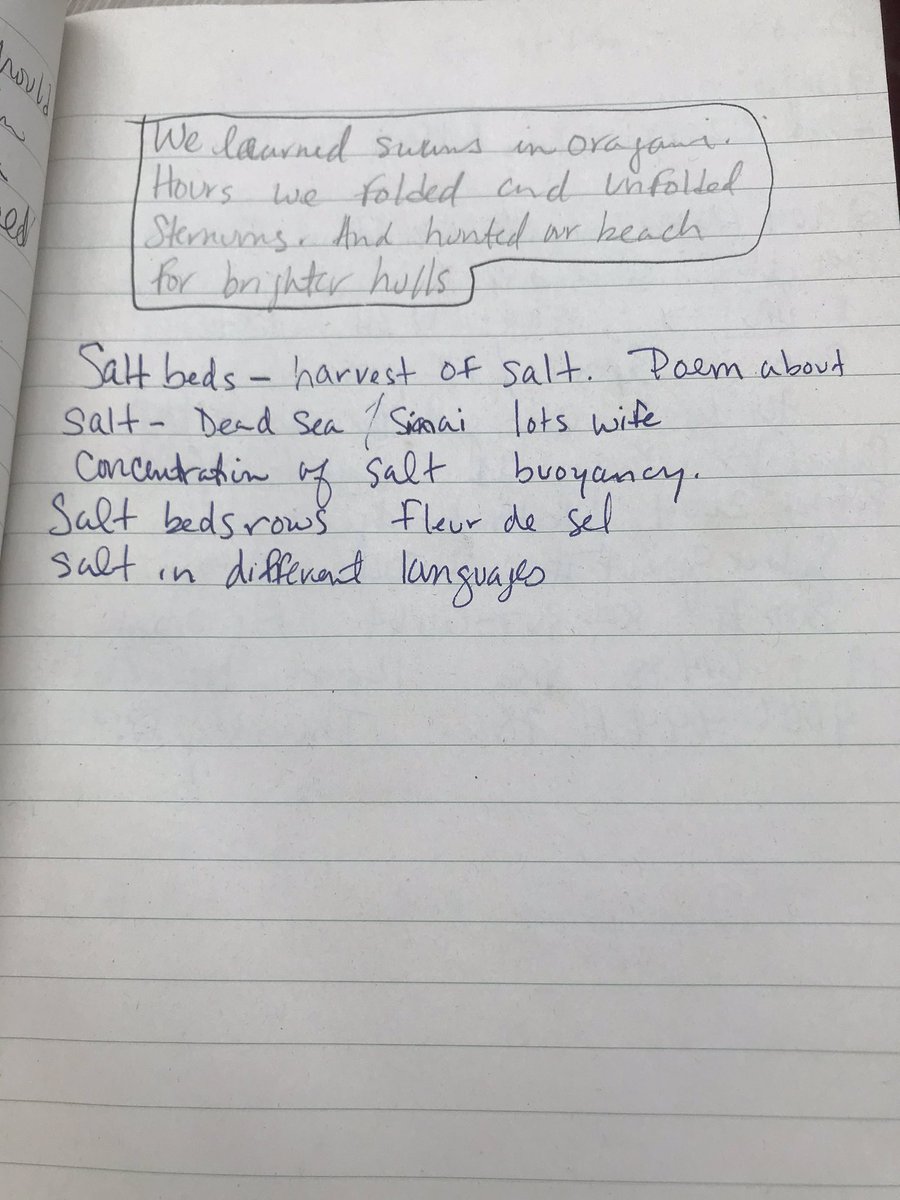 hould
ed
We learned swans in oragami.
Hours we folded and unfolded
Sternums. And hunted our beach
for brighter hulls
Salt beds – harvest of salt. Poem about
salt – Dead Sea / Sinai lots wife
Concentration of salt buoyancy.
Salt beds rows fleur de sel
salt in different languages